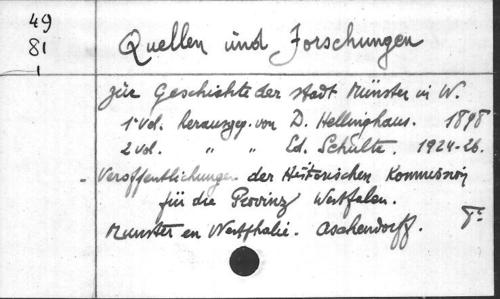 49
81
1
Quellen und Forschungen
zur Geschichte der Stadt Münster in W.
1 Vol. herausgeg. von D. Hellinghaus. 1898
2 Vol. " " Ed. Schulte. 1924-26.
- Veröffentlichungen der Historischen Kommission
für die Provinz Westfalen.
Munster en Westphalie. Aschendorff.